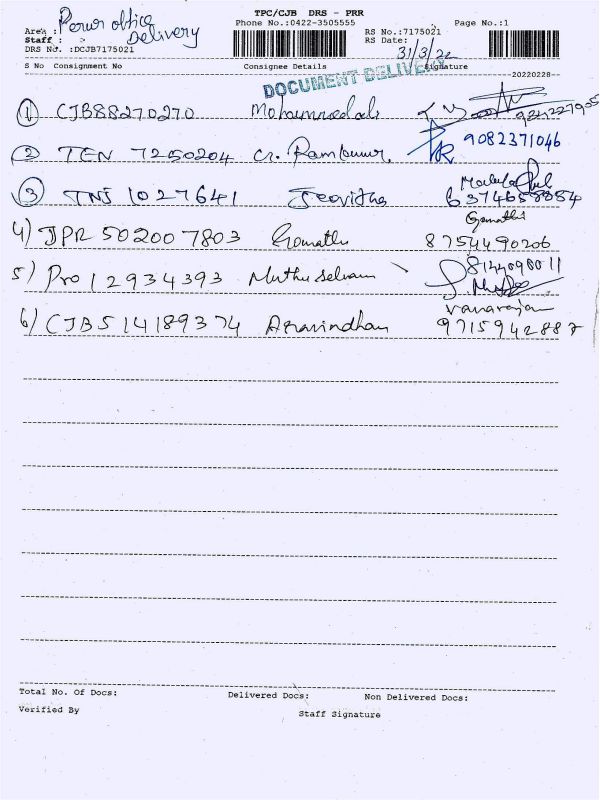 TPC/CJB DRS - PRR
Perur office
Phone No.:0422-3505555
Page No.:1
Area :
RS No.:7175021
Staff :
Delivery
RS Date:
31/3/22
DRS No. :DCJB7175021
S No Consignment No Consignee Details Signature
DOCUMENT DELIVERY
--20220228--
1 CJB88270270 Mohammedali
2 TEN 7250204 G. Ramkumar 9082371046
3 TNJ 1027641 Jeevitha 6374658854
Gomathi
4) JPR 502007803 Gomathi 8754490206
5) PRO 12934393 Muthu selvam
Vanarajan
6) CJB514189374 Aravindhan 9715942887
Total No. Of Docs: Delivered Docs: Non Delivered Docs:
Verified By
Staff Signature